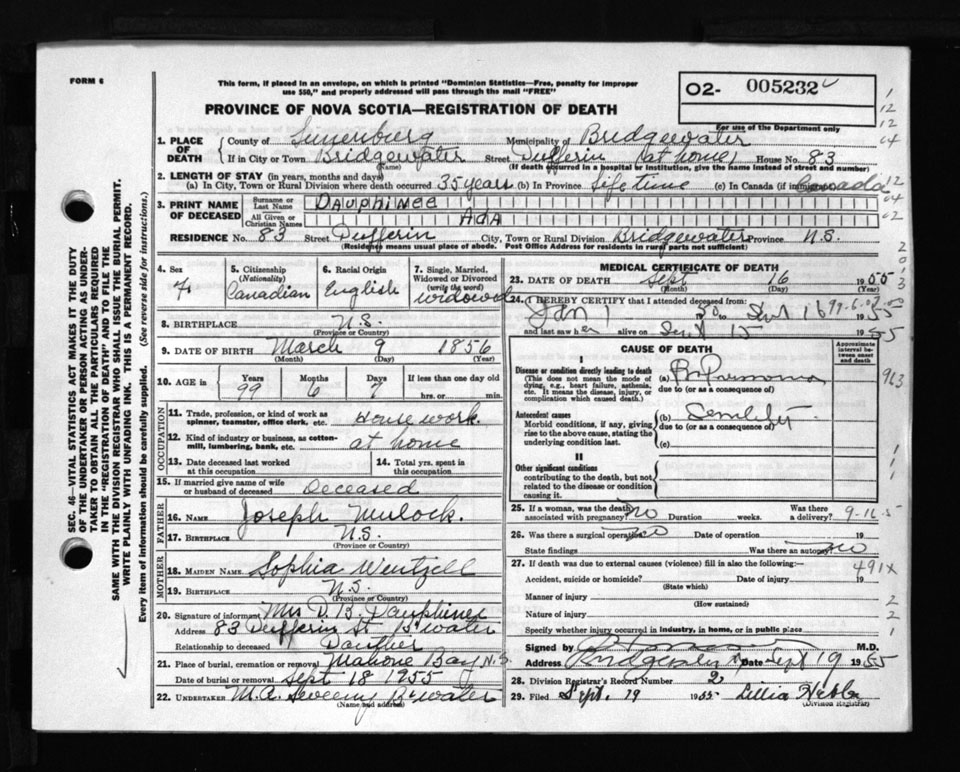 FORM 6
This form, if placed in an envelope, on which is printed "Dominion Statistics—Free, penalty for improper
use $50," and properly addressed will pass through the mail "FREE"
PROVINCE OF NOVA SCOTIA—REGISTRATION OF DEATH
02- 005232
For use of the Department only
1. PLACE OF DEATH
County of Lunenburg Municipality of Bridgewater
If in City or Town Bridgewater Street Dufferin (at home) House No. 83
(Name) (If death occurred in a hospital or institution, give the name instead of street and number)
2. LENGTH OF STAY (in years, months and days)
(a) In City, Town or Rural Division where death occurred 35 years (b) In Province Life time (c) In Canada (if immigrant) Canada
3. PRINT NAME OF DECEASED
Surname or Last Name DAUPHINEE
All Given or Christian Names ADA
RESIDENCE No. 83 Street Dufferin City, Town or Rural Division Bridgewater Province N.S.
(Residence means usual place of abode. Post Office Address for residents in rural parts not sufficient)
4. Sex
F
5. Citizenship (Nationality)
Canadian
6. Racial Origin
English
7. Single, Married, Widowed or Divorced (write the word)
widowed
8. BIRTHPLACE N.S.
(Province or Country)
9. DATE OF BIRTH March 9 1856
(Month) (Day) (Year)
10. AGE in Years Months Days If less than one day old
99 6 7 hrs. or min.
OCCUPATION
11. Trade, profession, or kind of work as spinner, teamster, office clerk, etc. House work
12. Kind of industry or business, as cotton-mill, lumbering, bank, etc. at home
13. Date deceased last worked at this occupation
14. Total yrs. spent in this occupation
15. If married give name of wife or husband of deceased Deceased
FATHER
16. NAME Joseph Mulock.
17. BIRTHPLACE N.S.
(Province or Country)
MOTHER
18. MAIDEN NAME Sophia Wentzell
19. BIRTHPLACE N.S.
(Province or Country)
20. Signature of informant Mrs D. B. Dauphinee
Address 83 Dufferin St B'water
Relationship to deceased Daughter
21. Place of burial, cremation or removal Mahone Bay N.S.
Date of burial or removal Sept 18 1955
22. UNDERTAKER M.A. Sweeny B'water
(Name and address)
MEDICAL CERTIFICATE OF DEATH
23. DATE OF DEATH Sept 16 1955
(Month) (Day)
24. I HEREBY CERTIFY that I attended deceased from:
Jan 1 1950 to Sept 16 1955
99-6-
and last saw her alive on Sept 15 1955
CAUSE OF DEATH
Approximate interval between onset and death
I
Disease or condition directly leading to death
(This does not mean the mode of dying, e.g., heart failure, asthenia, etc. It means the disease, injury, or complication which caused death.)
(a) Br Pneumonia
due to (or as a consequence of)
Antecedent causes
Morbid conditions, if any, giving rise to the above cause, stating the underlying condition last.
(b) Senility
due to (or as a consequence of)
(c)
II
Other significant conditions
contributing to the death, but not related to the disease or condition causing it.
25. If a woman, was the death associated with pregnancy? no Duration weeks. Was there a delivery?
9-16-5
26. Was there a surgical operation? no Date of operation 19
State findings Was there an autopsy? no
27. If death was due to external causes (violence) fill in also the following:—
491x
Accident, suicide or homicide? Date of injury 19
(State which)
Manner of injury
(How sustained)
Nature of injury
Specify whether injury occurred in industry, in home, or in public place
Signed by M.D.
Address Bridgewater Date Sept 19 1955
28. Division Registrar's Record Number 2
29. Filed Sept. 19 1955 Lillia Hebb
(Division Registrar)
SEC. 46—VITAL STATISTICS ACT MAKES IT THE DUTY
OF THE UNDERTAKER OR PERSON ACTING AS UNDERTAKER
TO OBTAIN ALL THE PARTICULARS REQUIRED
IN THE "REGISTRATION OF DEATH" AND TO FILE THE
SAME WITH THE DIVISION REGISTRAR WHO SHALL ISSUE THE BURIAL PERMIT.
WRITE PLAINLY WITH UNFADING INK. THIS IS A PERMANENT RECORD.
Every item of information should be carefully supplied. (See reverse side for instructions.)
1
12
12
04
12
04
02
2
0
1
3
963
1
1
1
1
2
2
1